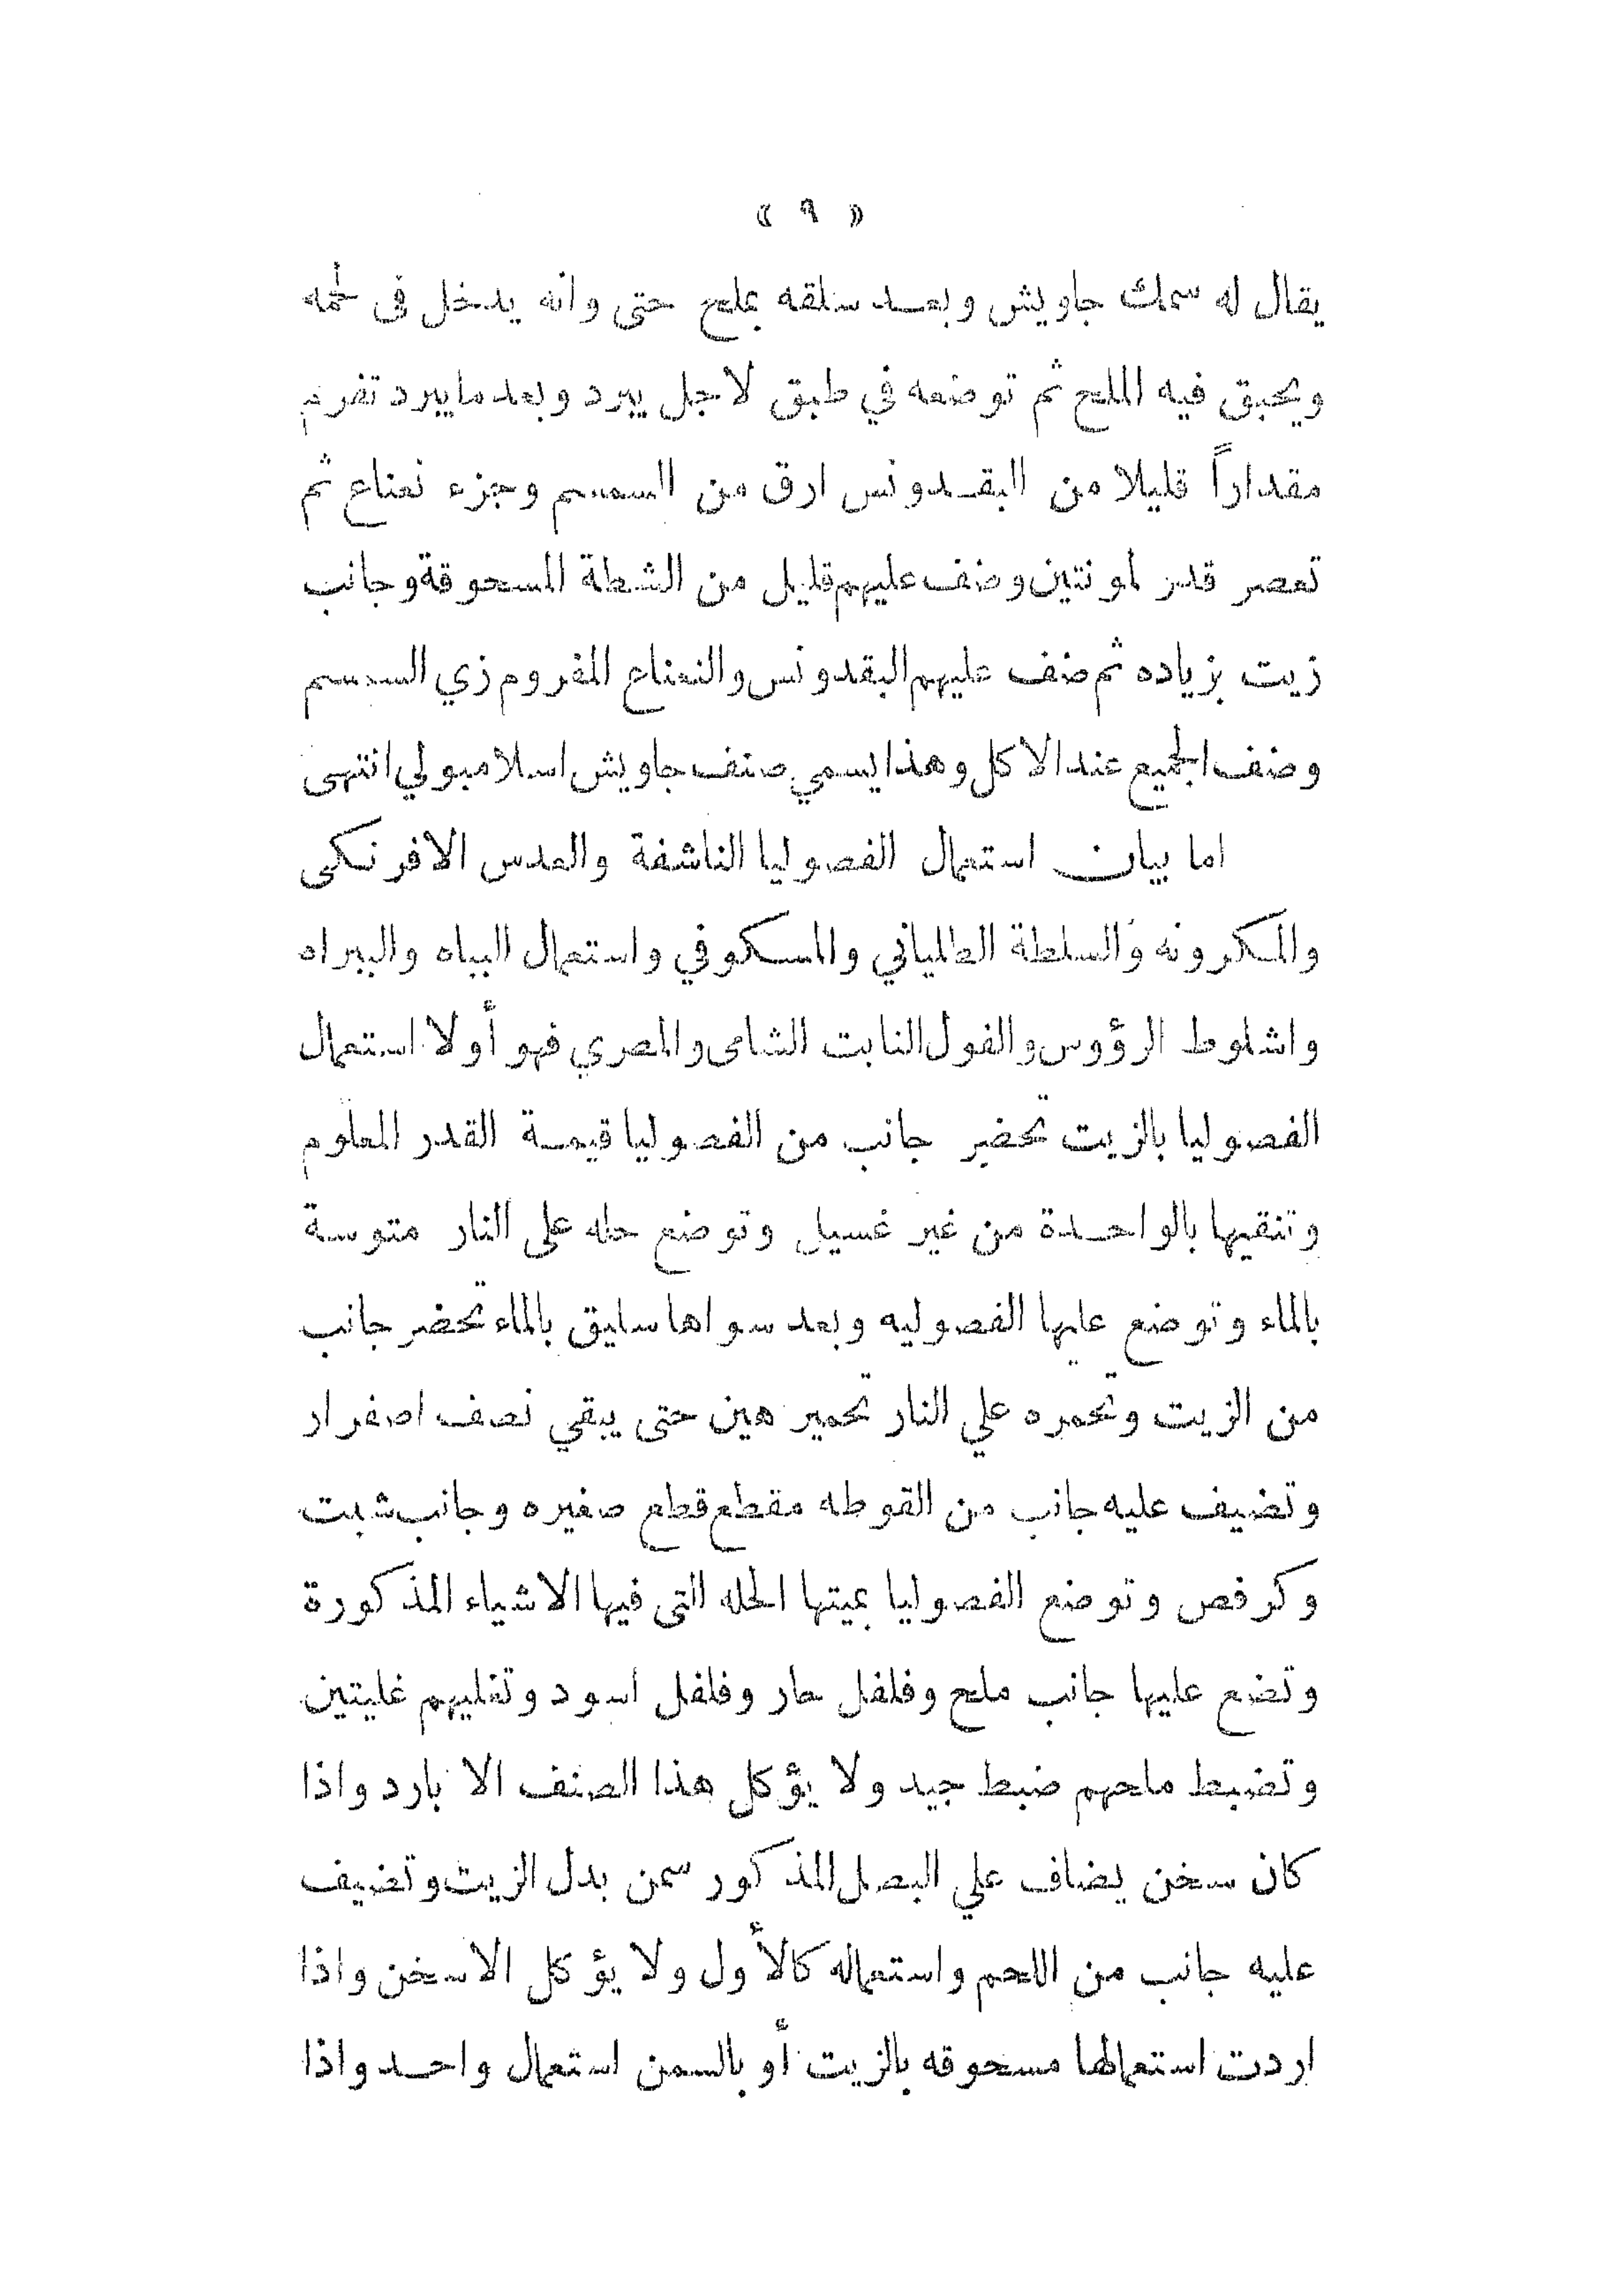 « ٩ »
يقال له سمك جاويش وبعد سلقه بملح حتى وانه يدخل فى لحمه
ويحبق فيه الملح ثم توضعه في طبق لاجل يبرد وبعد مايبرد تفرم
مقداراً قليلا من البقدونس ارق من السمسم وجزء نعناع ثم
تعصر قدر لمونتين وضف عليهم قليل من الشطة المسحوقة وجانب
زيت بزياده ثم ضف عليهم البقدونس والنعناع المفروم زي السمسم
وضف الجميع عند الاكل وهذا يسمي صنف جاويش اسلامبولي انتهى
اما بيان استعمال الفصوليا الناشفة والعدس الافرنكى
والمكرونه والسلطة الطلياني والمسكوفي واستعمال البياه والبيراه
واشلوط الرؤوس والفول النابت الشامى والمصري فهو أولا استعمال
الفصوليا بالزيت تحضير جانب من الفصوليا قيمة القدر المعلوم
وتنقيها بالواحدة من غير غسيل وتوضع حله على النار متوسة
بالماء وتوضع عليها الفصوليه وبعد سواها سليق بالماء تحضر جانب
من الزيت وتحمره علي النار تحمير هين حتى يبقي نصف اصفرار
وتضيف عليه جانب من القوطه مقطع قطع صغيره وجانب شبت
وكرفص وتوضع الفصوليا بميتها الحله التى فيها الاشياء المذكورة
وتضع عليها جانب ملح وفلفل حار وفلفل اسود وتغليهم غليتين
وتضبط ملحهم ضبط جيد ولا يؤكل هذا الصنف الا بارد واذا
كان سخن يضاف علي البصل المذكور سمن بدل الزيت وتضيف
عليه جانب من اللحم واستعماله كالأول ولا يؤكل الاسخن واذا
اردت استعمالها مسحوقه بالزيت أو بالسمن استعمال واحد واذا